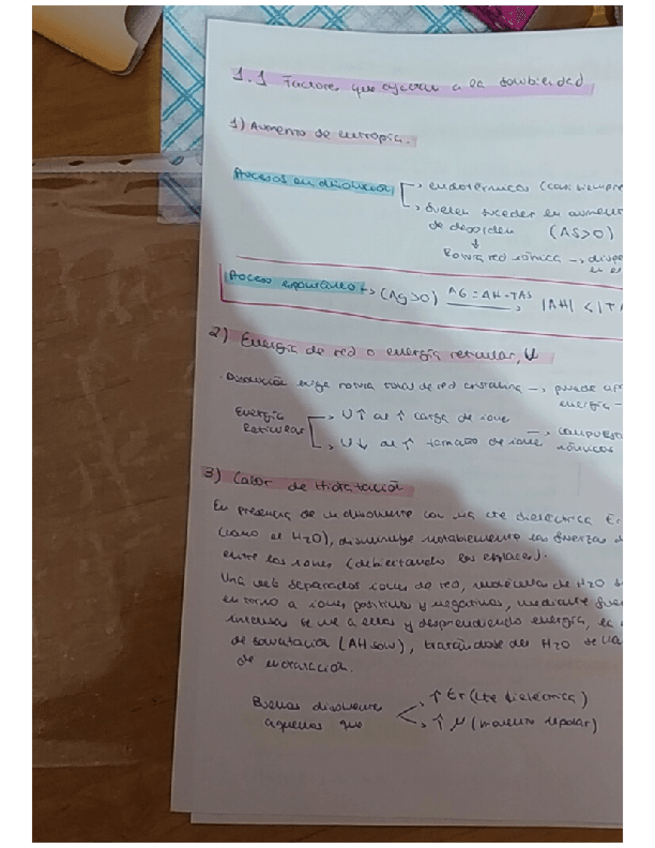 1.1 Factores que afectan a la solubilidad
1) Aumento de entropía.
Procesos en disolución → endotérmicos (casi siempre
→ Suelen suceder en aumento
de desorden (ΔS>0)
↓
Rotura red iónica →
Proceso espontáneo → (ΔG>0) ΔG=ΔH-TΔS → |ΔH| < |T
2) Energía de red o energía reticular, U
· Disolución exige rotura total de red cristalina → puede
energía
Energía → U↑ al ↑ carga de iones
Reticular → U↓ al ↑ tamaño de iones → compuestos
iónicos
3) Calor de Hidratación
En presencia de un disolvente con una cte dieléctrica Er
(como el H2O), disminuye notablemente las fuerzas
entre los iones (debilitando los enlaces).
Una vez separados iones de red, moléculas de H2O
en torno a iones positivos y negativos, mediante
intensas se une a ellas y desprendiendo energía,
de solvatación (ΔHsolv), tratándose del H2O se
de hidratación.
Buenos disolventes → ↑ Er (cte dieléctrica)
aquellos que → ↑ μ (momento dipolar)